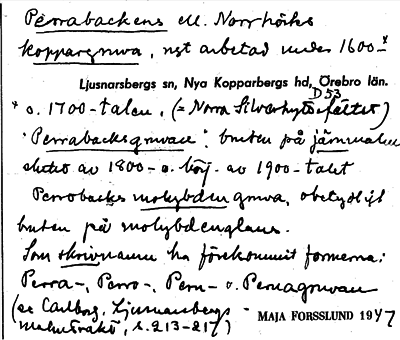 Perrabackens ell. Norrhörks
koppargruva, ngt arbetad under 1600-*
Ljusnarsbergs sn, Nya Kopparbergs hd, Örebro län.
D 53
* o. 1700-talen, (= Norra Silverhytte fältet)
"Perrabacksgruvan", bruten på järnmalm
slutet av 1800- o. börj. av 1900-talet
Perrobackes molybdengruva, obetydligt
bruten på molybdenglans.
Som skrivnamn ha förekommit formerna:
Perra-, Perro-, Pern- o. Pernagruvan
(se Carlborg, Ljusnarsbergs
malmtrakt, s. 213-217)
MAJA FORSSLUND 1947